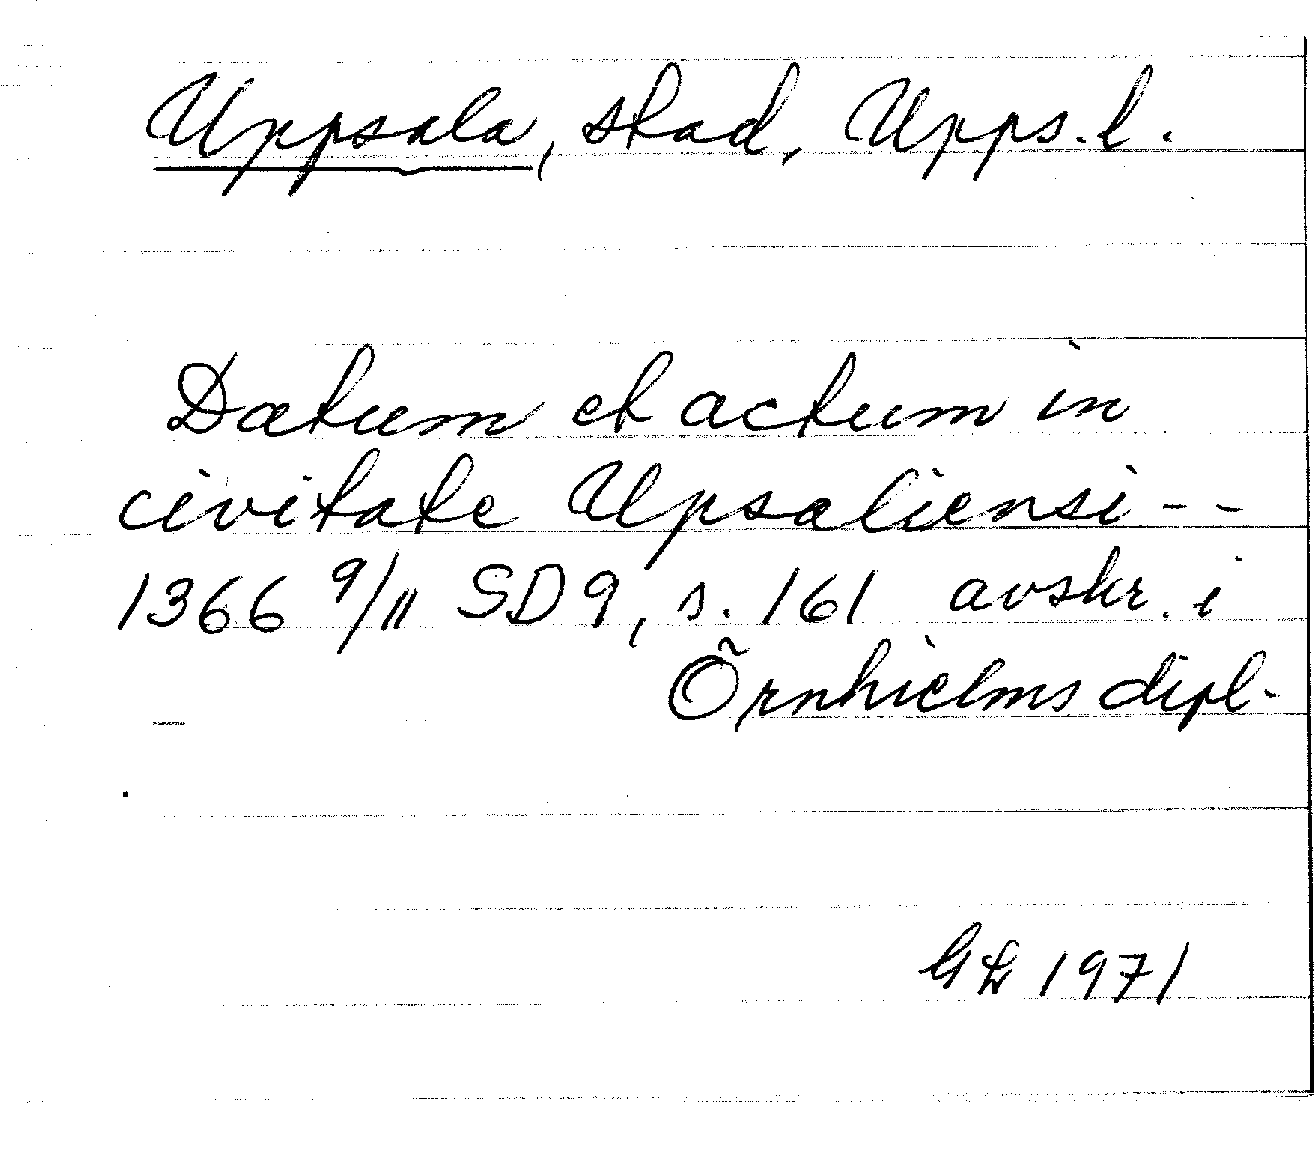 Uppsala, stad, Upps.l.
Datum et actum in
civitate Upsaliensi - -
1366 9/11 SD 9, s. 161 avskr. i
Örnhielms dipl.
GL 1971